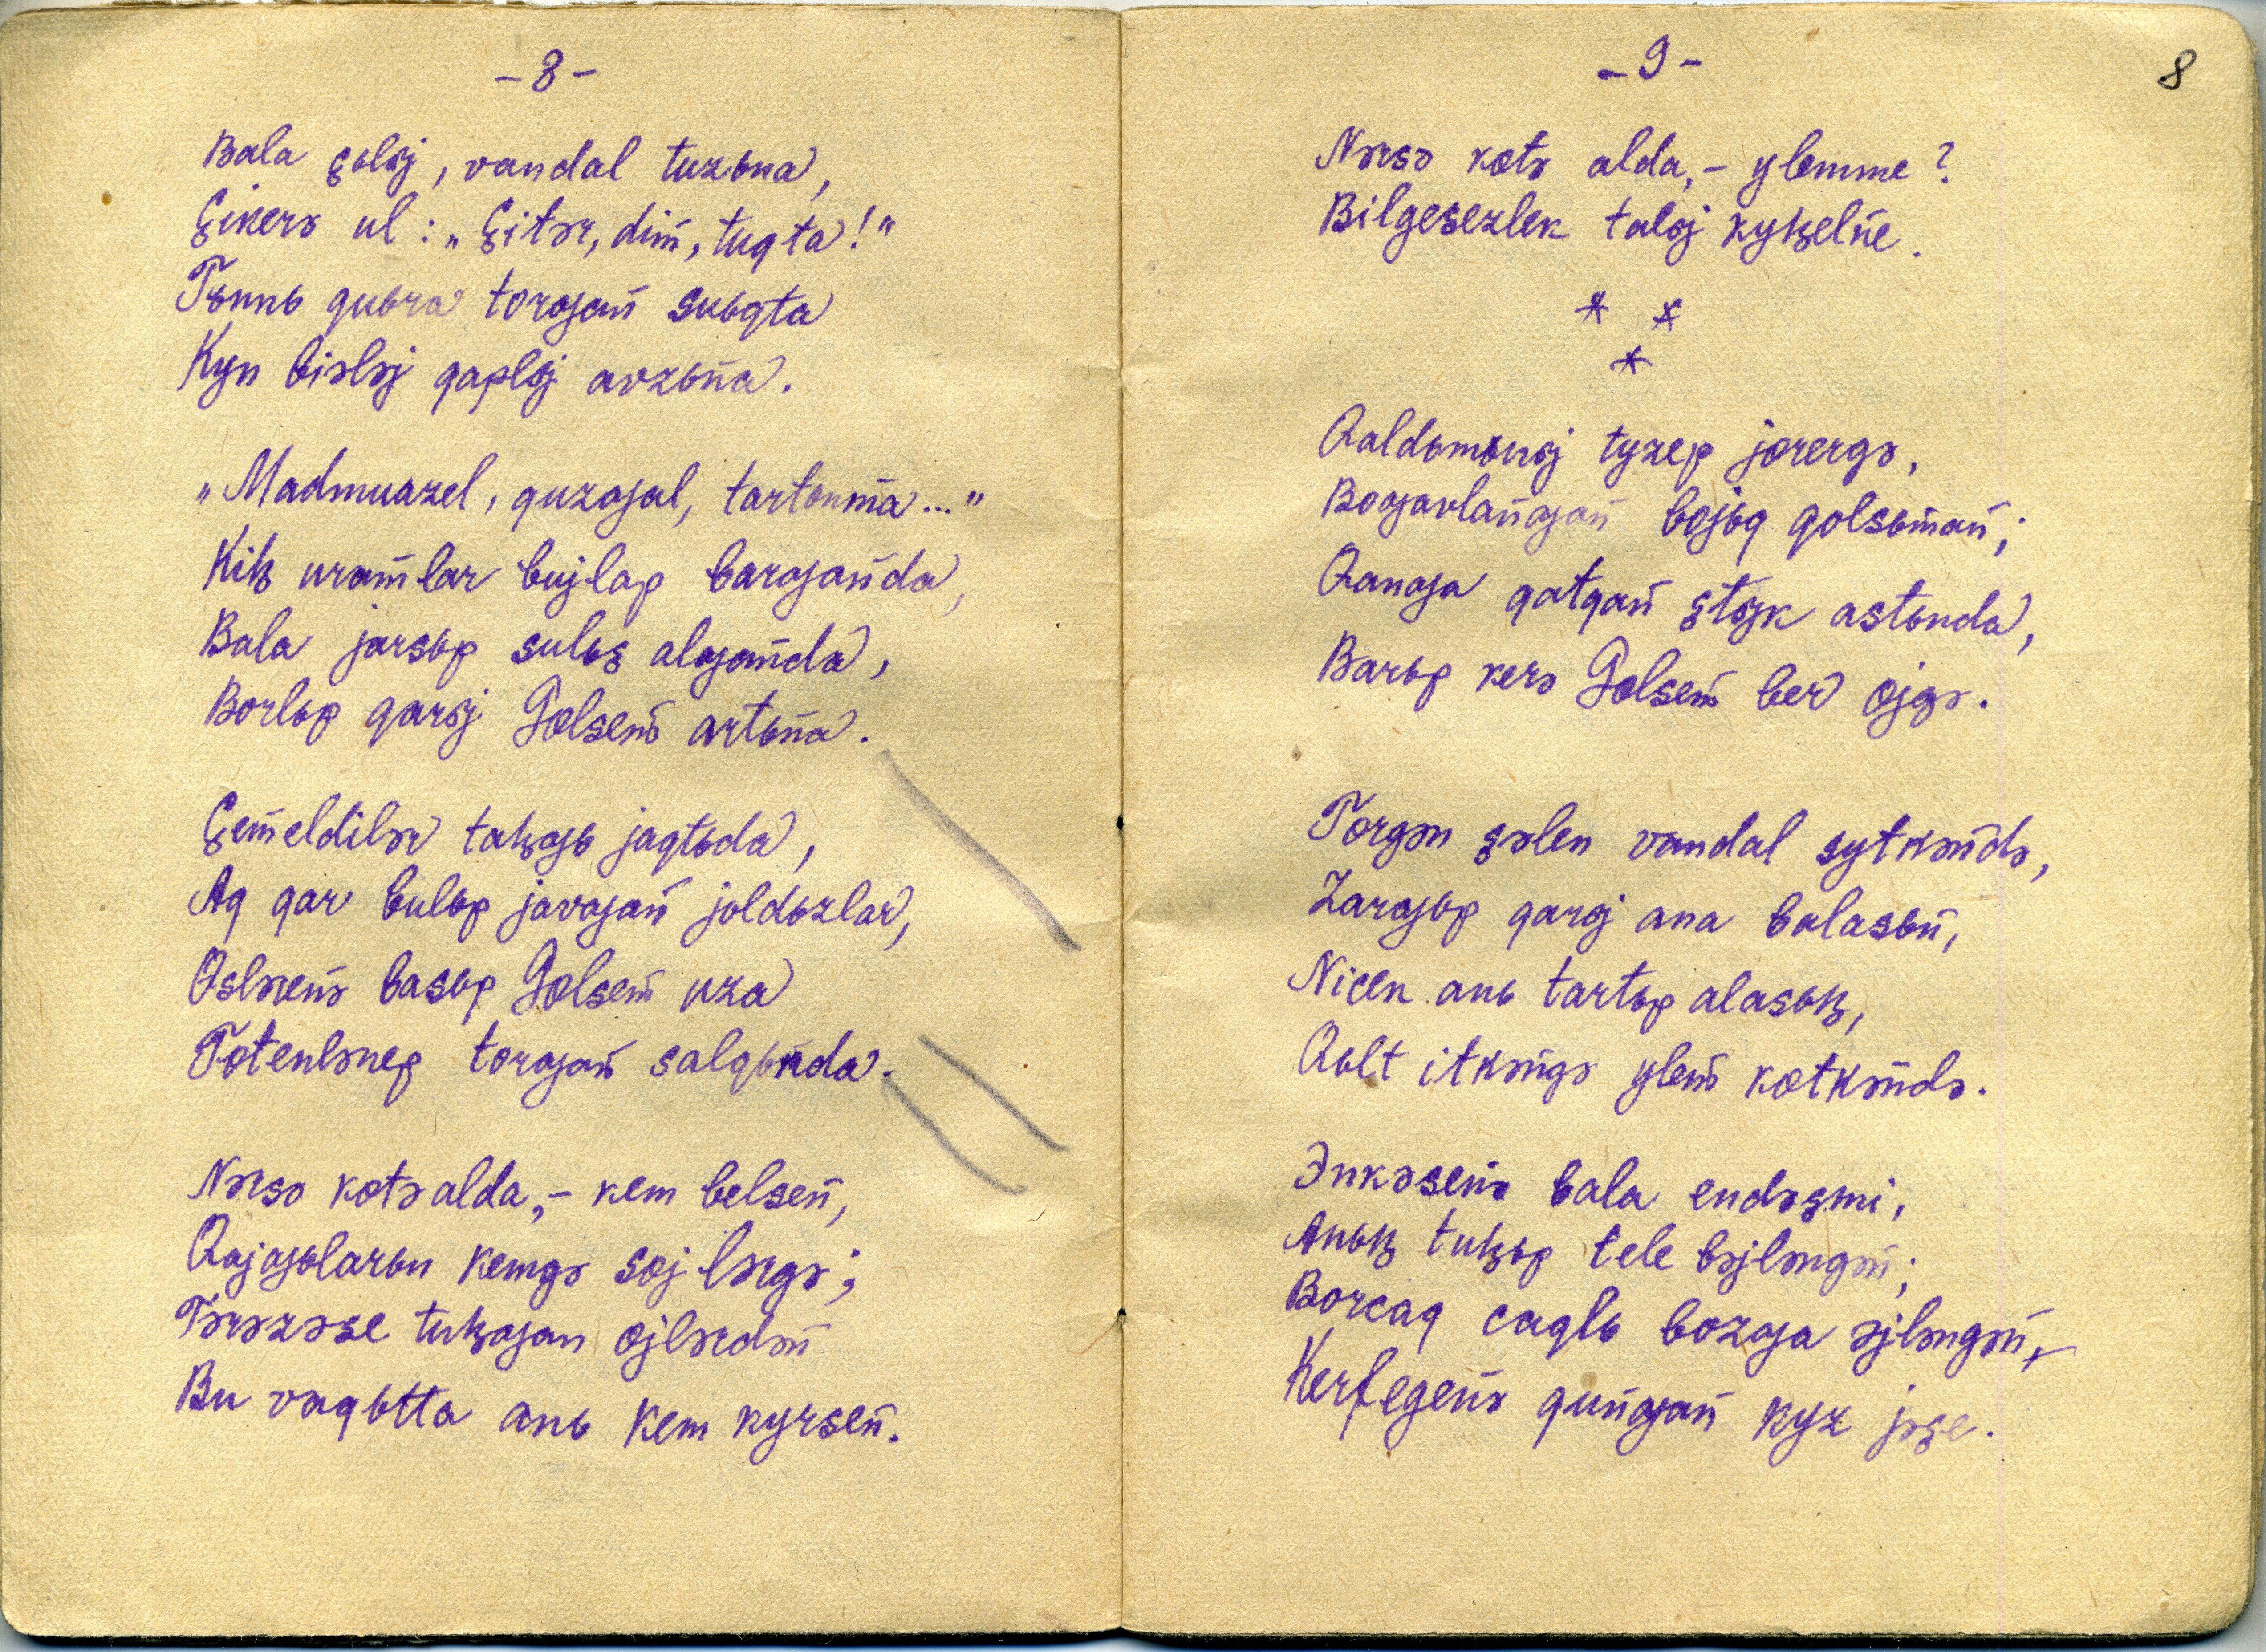 -8-
Bala çьlьj, vandal tuzьna,
Çikerə ul: „Çitər, dim, tuqta!“
Tьnnь quьra torƣan suьqta
Kyn biələj qaplьj avzьna.
„Madmuazel, quzƣal, tartьnma...“
Kiꞑ uramlar bujlap barƣanda,
Bala jarsьp sulьş alƣanda,
Borlьp qarьj Gɵlsem artьna.
Çemeldilər taꞑƣь jaqtьda,
Aq qar bulьp javƣan joldьzlar,
Ɵslərenə basьp Gɵlsem uza
Tɵtenlənep torƣan salqьnda.
Nərsə kɵtə alda,- kem belsen,
Qajƣьlarьn kemgə sɵjlərgə;
Tərəzəse tuꞑƣan ɵjlərdən
Bu vaqьtta anь kem kyrsen.
-9-
8
Nərsə kɵtə alda,- ylemme?
Bilgesezlek talьj kyꞑelne.
* *
*
Qaldьmьnьj tyzep jɵrergə,
Boƣavlanƣan bojьq qolsьman;
Qanƣa qatqan ştьjk astьnda,
Barьp kerə Gɵlsem ber ɵjgə.
Tɵrgən şəlen vandal sytkəndə,
Zarƣьp qarьj ana balasьn,
Nicek anь tartьp alasьꞑ,
Qьlt itkəngə ylem kɵtkəndə.
Ənkəsenə bala endəşmi,
Anьꞑ tuꞑьp tele bəjləngən;
Borcaq caqlь bozƣa əjləngən,
Kerfegenə qunƣan kyz jəşe.